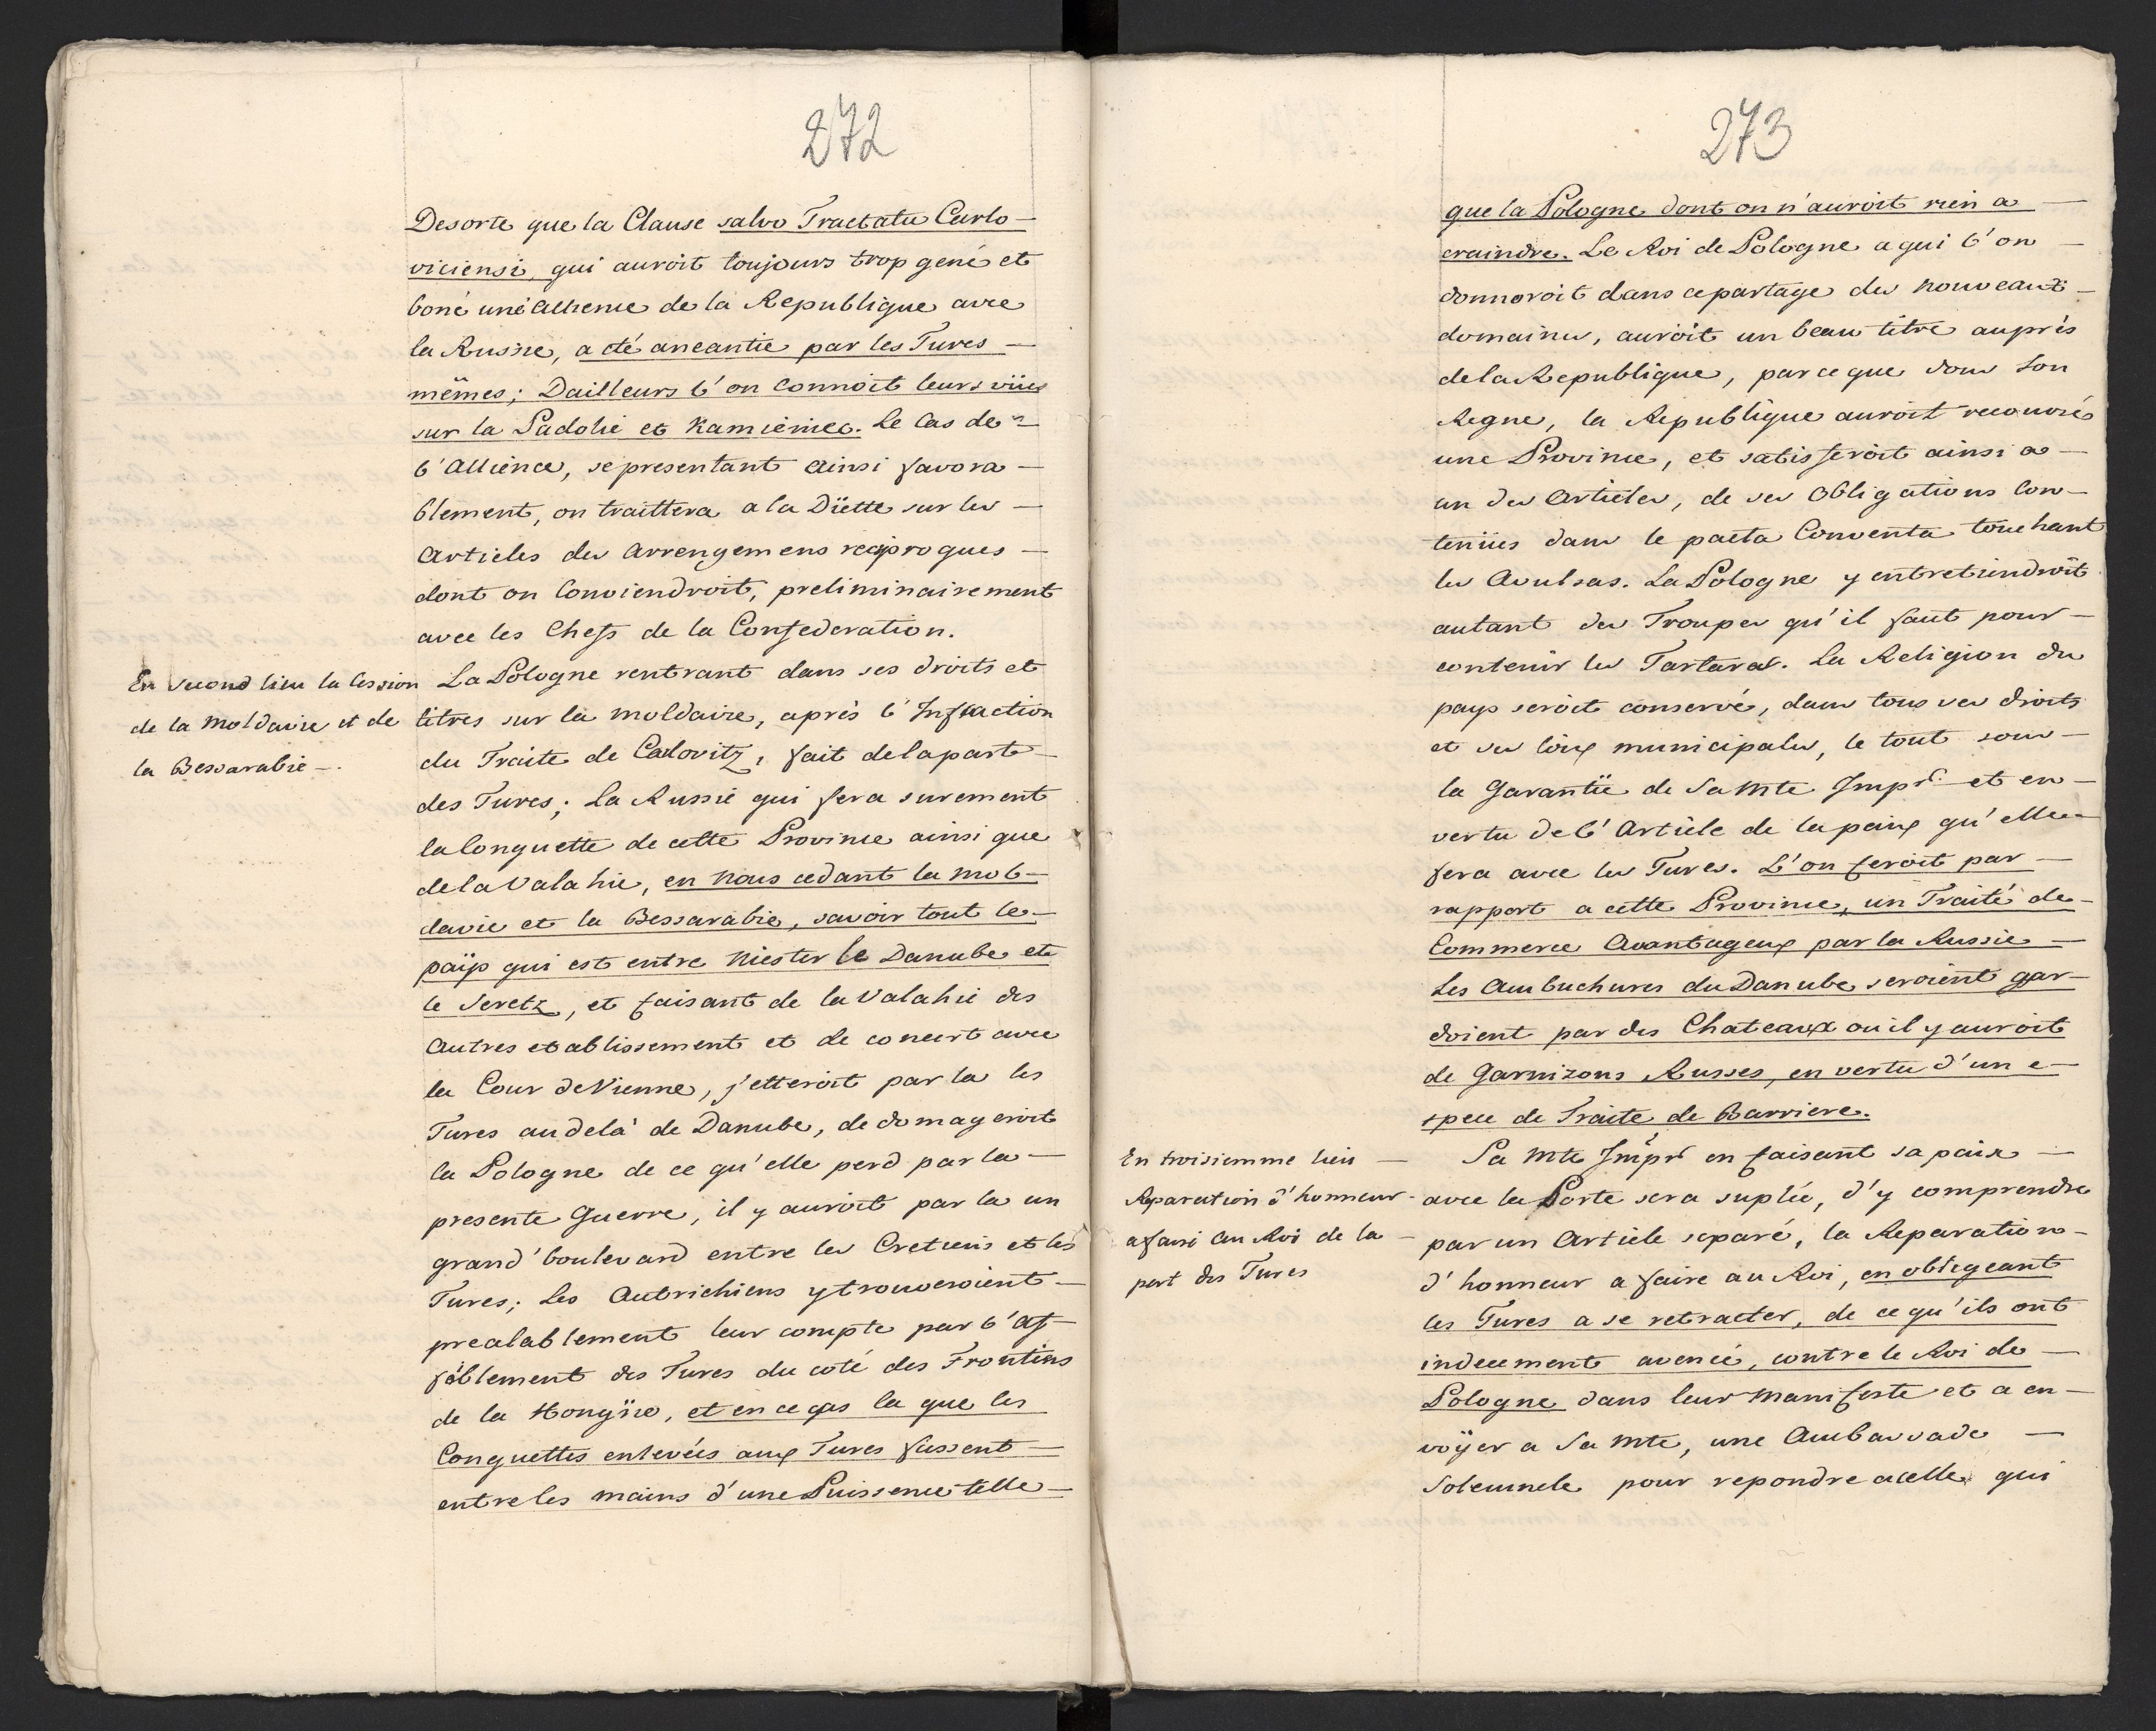 272
Desorte que la Clause salvo Tractatu Carlo-
viciensi, qui auroit toujours trop gené et
boné une Allience de la Republique avec
la Russie, a eté aneantie par les Turcs -
mêmes; Dailleurs l'on connoit leurs vües
sur la Padolie et Kamieniec. Le Cas de
l'Allience, se presentant ainsi favora-
blement, on traittera a la Diette sur les -
Articles des Arrengemens reciproques -
dont on Conviendroit, preliminairement
avec les Chefs de la Confederation.
En second lieu la Cession
de la Moldavie et de
la Bessarabie -.
La Pologne rentrant dans ses droits et
titres sur la Moldavie, après l'Infraction
du Traité de Calovitz, fait de la part -
des Turcs; La Russie qui fera surement
la Conquette de cette Province ainsi que
de la Valahie, en nous cedant la Mol-
davie et la Bessarabie, savoir tout le -
païs qui est entre Niester le Danube et
le Seretz, et faisant de la Valahie des
Autres etablissement et de concert avec
la Cour de Vienne, jetteroit par la les
Turcs au dela de Danube, dedomageroit
la Pologne de ce qu'elle perd par la -
presente Guerre, il y auroit par la un
grand boulevard entre les Cretiens et les
Turcs; Les Autrichiens y trouveroient -
prealablement leur compte par l'af-
föblement des Turcs du coté des Frontiers
de la Hongrie, et en ce cas la que les
Conquettes enlevées aux Turcs fussent -
entre les mains d'une Puissence telle -
273
que la Pologne dont on n'auroit rien a -
craindre. Le Roi de Pologne a qui l'on -
donneroit dans ce partage des nouveaux -
domaines, auroit un beau titre auprès
de la Republique, parce que sous son
Regne, la Republique auroit recouvré
une Province, et satisferoit ainsi a -
un des Articles, de ses Obligations Con-
tenües dans le pacta Conventa touchant
les Avulsas. La Pologne y entretiendroit
autant des Troupes qu'il faut pour -
contenir les Tartares. La Religion du
pays seroit conservé, dans tous ses droits
et ses loix municipales, le tout sous -
la Garantie de Sa Mte Impr et en -
vertu de l'Article de la paix qu'elle
fera avec les Turcs. L'on feroit par -
rapport a cette Province, un Traité de -
Commerce Avantageux par la Russie -
Les Ambuchures du Danube seroient gar-
doient par des Chateaux ou il y auroit
de Garnizons Russes, en vertu d'un e-
spece de Traite de Barriere.
En troisiemme lieu -
Reparation d'honneur -
a faire au Roi de la -
part des Turcs
Sa Mte Impr en faisant sa paix -
avec la Porte sera supliée, d'y comprendre
par un Article separé, la Reparation -
d'honneur a faire au Roi, en obligeant
les Turcs a se retracter, de ce qu'ils ont
indecement avencé, contre le Roi de -
Pologne dans leur Manifeste et a en-
voÿer a Sa Mte, une Ambassade -
Solemnele pour repondre a celle qui